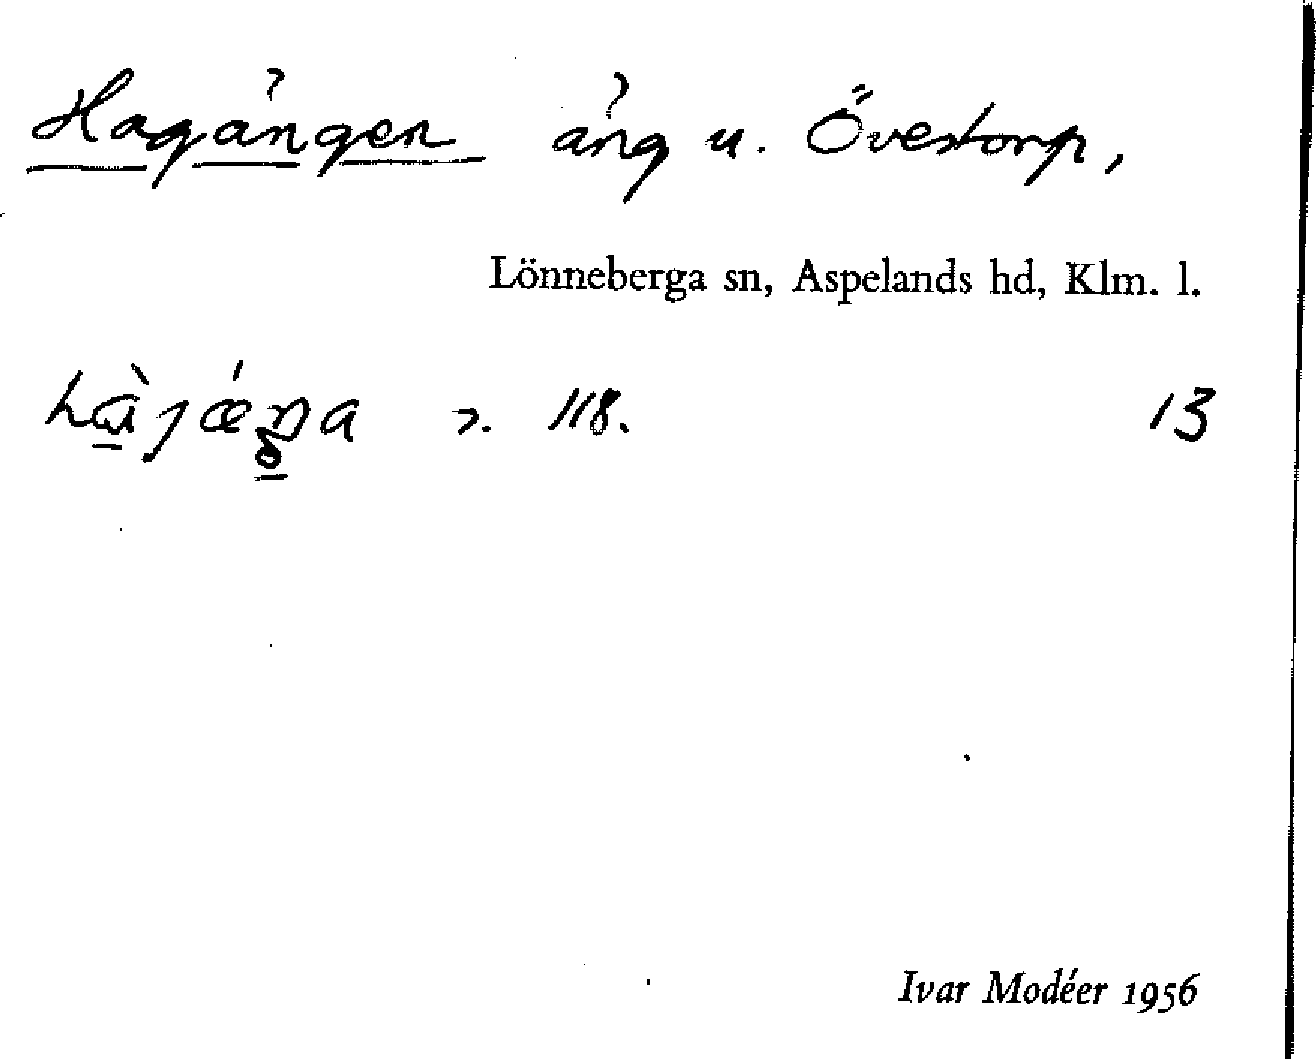 Hagängen äng u. Övestorp,
Lönneberga sn, Aspelands hd, Klm. l.
118. 13
Ivar Modéer 1956